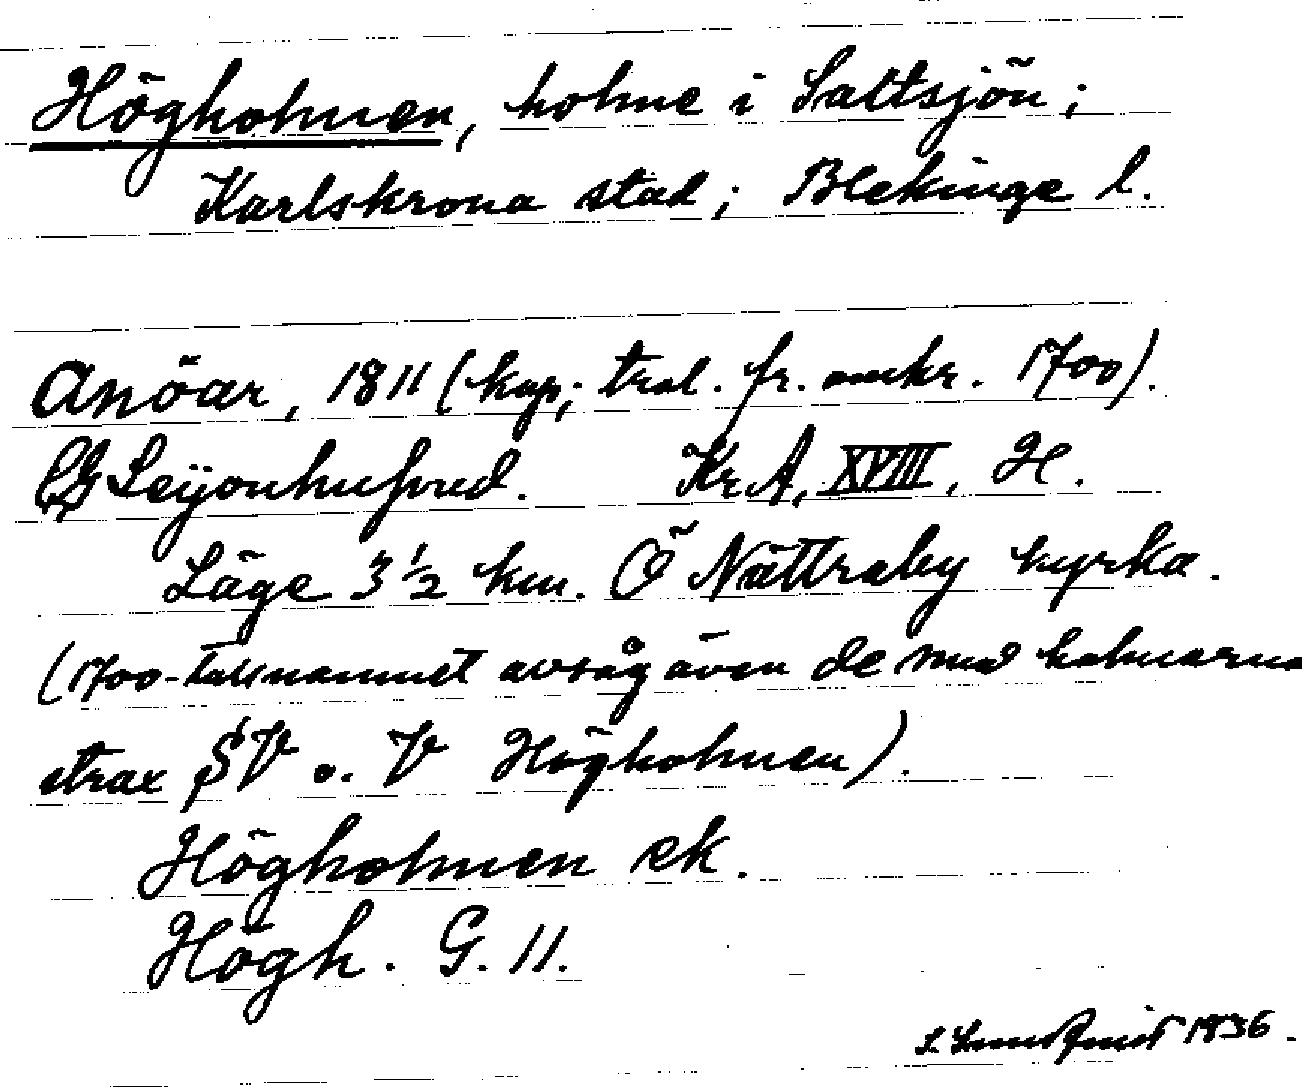 Högholmen, holme i Saltsjön;
Karlskrona stad; Blekinge l.
Anöar, 1811 (kop; trol. fr. omkr. 1700).
CG Leijonhufvud. Kr.A, XVIII, H.
Läge 3 1/2 km. Ö Nättraby kyrka.
(1700-talsnamnet avsåg även de små holmarna
strax SV o. V Högholmen).
Högholmen ek.
Högh. G. 11.
1936.